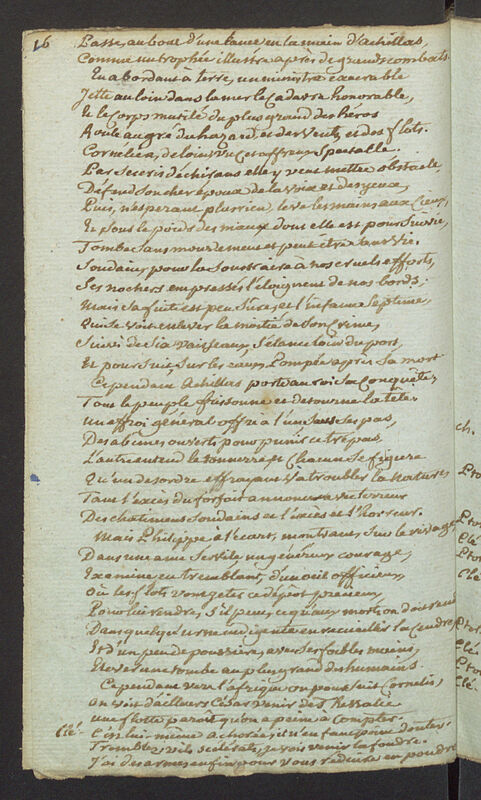 16
Passe, au bout d'une lance en la main d'achillas,
Comme un trophée illustre après de grands combats.
En abordant à terre, un ministre execrable
Jette au loin dans la mer le Cadavre honorable,
Et le Corps mutilé du plus grand des héros
Roule au gré du hazard, et des Vents, et des flots.
Cornélie, de loin vu cet affreux Spectacle.
Par Ses cris déchirans elle y veut mettre obstacle,
Défend Son cher époux de la voix et des yeux,
Puis, n'esperant plus rien, leve les mains aux Cieux,
Et Sous le poids des maux dont elle est poursuivie,
Tombe Sans mouvement et peut être Sans Vie.
Soudain, pour la Soustraire à nos cruels efforts,
Ses nochers empressés l'éloignent de nos bords;
Mais Sa fuite est peu Sûre, et l'infame Septime,
Qui Se Voit enlever la moitié de Son Crime,
Suivi de Six Vaisseaux, S'élance loin du port,
Et poursuit Sur les eaux, Pompée après Sa mort
Cependant Achillas porte au roi Sa Conquête,
Tout le peuple frissonne et detourne la tête
un effroi général offre à l'un Sous Ses pas,
Des abîmes ouverts pour punir ce trépas
L'autre entend le tonnerre, et Chacun Se figure
Qu'un desordre effrayant Va troubler la Nature
Tant l'excès du forfait annonce avec terreur
Des chatimens Soudains et l'excès et l'horreur.
Mais Philippe à l'écart, montrant, Sur le rivage
Dans une ame Servile un généreux courage,
Examine en tremblant, d'un oeil officieux,
Où les flots vont jeter ce dépôt précieux,
Pour lui rendre, S'il peut, ce qu'aux morts on doit rendre
Dans quelqu'urne indigente en recueillir la Cendre,
Et d'un peu de poussière, avec Ses foibles mains,
Elever une tombe au plus grand des humains.
Cependant vers l'afrique on poursuit Cornélie,
on voit d'ailleurs César venir de Thessalie
une flotte paraît qu'on a peine à Compter.
Clé. C'est lui-même achorée, il n'en faut point douter.
Tremblez, vils scelérats, je vois venir la foudre.
J'ai des armes enfin pour vous réduire en poudre
ch.
Pto
Ptol
Clé
Ptol
Clé
Ptol.
Clé.
Ptol
Clé.